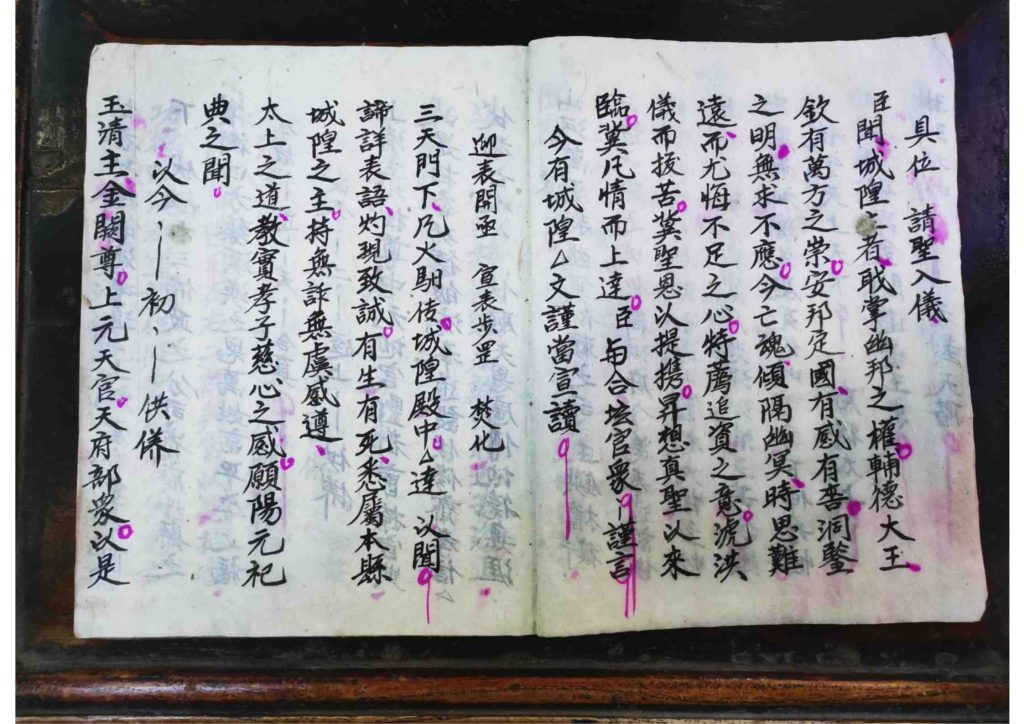 具位 請聖入儀
臣聞城隍二者戢掌幽邦之權輔德大王
欽有萬方之崇安邦定國有感有灵洞鑒
之明無求不應今亡魂傾隔幽冥時思難
遠而尤悔不足之心特薦追資之意洪
儀而拔苦冀聖恩以提携昇想真聖以來
臨冀凡情而上達臣每合坛官衆丨謹言
今有城隍厶文謹當宣讀
迎表開函 宣表步罡 焚化
三天門下凡火馹傳城隍殿中厶達 以聞
諦詳表語灼現致誠有生有死悉屬本縣
城隍之主持無詐無虞感遵
太上之道教實孝子慈心之感願陽元祀
典之聞
以今丶丨初丶丨供养
玉清主金闕尊上元天官天府部衆以是